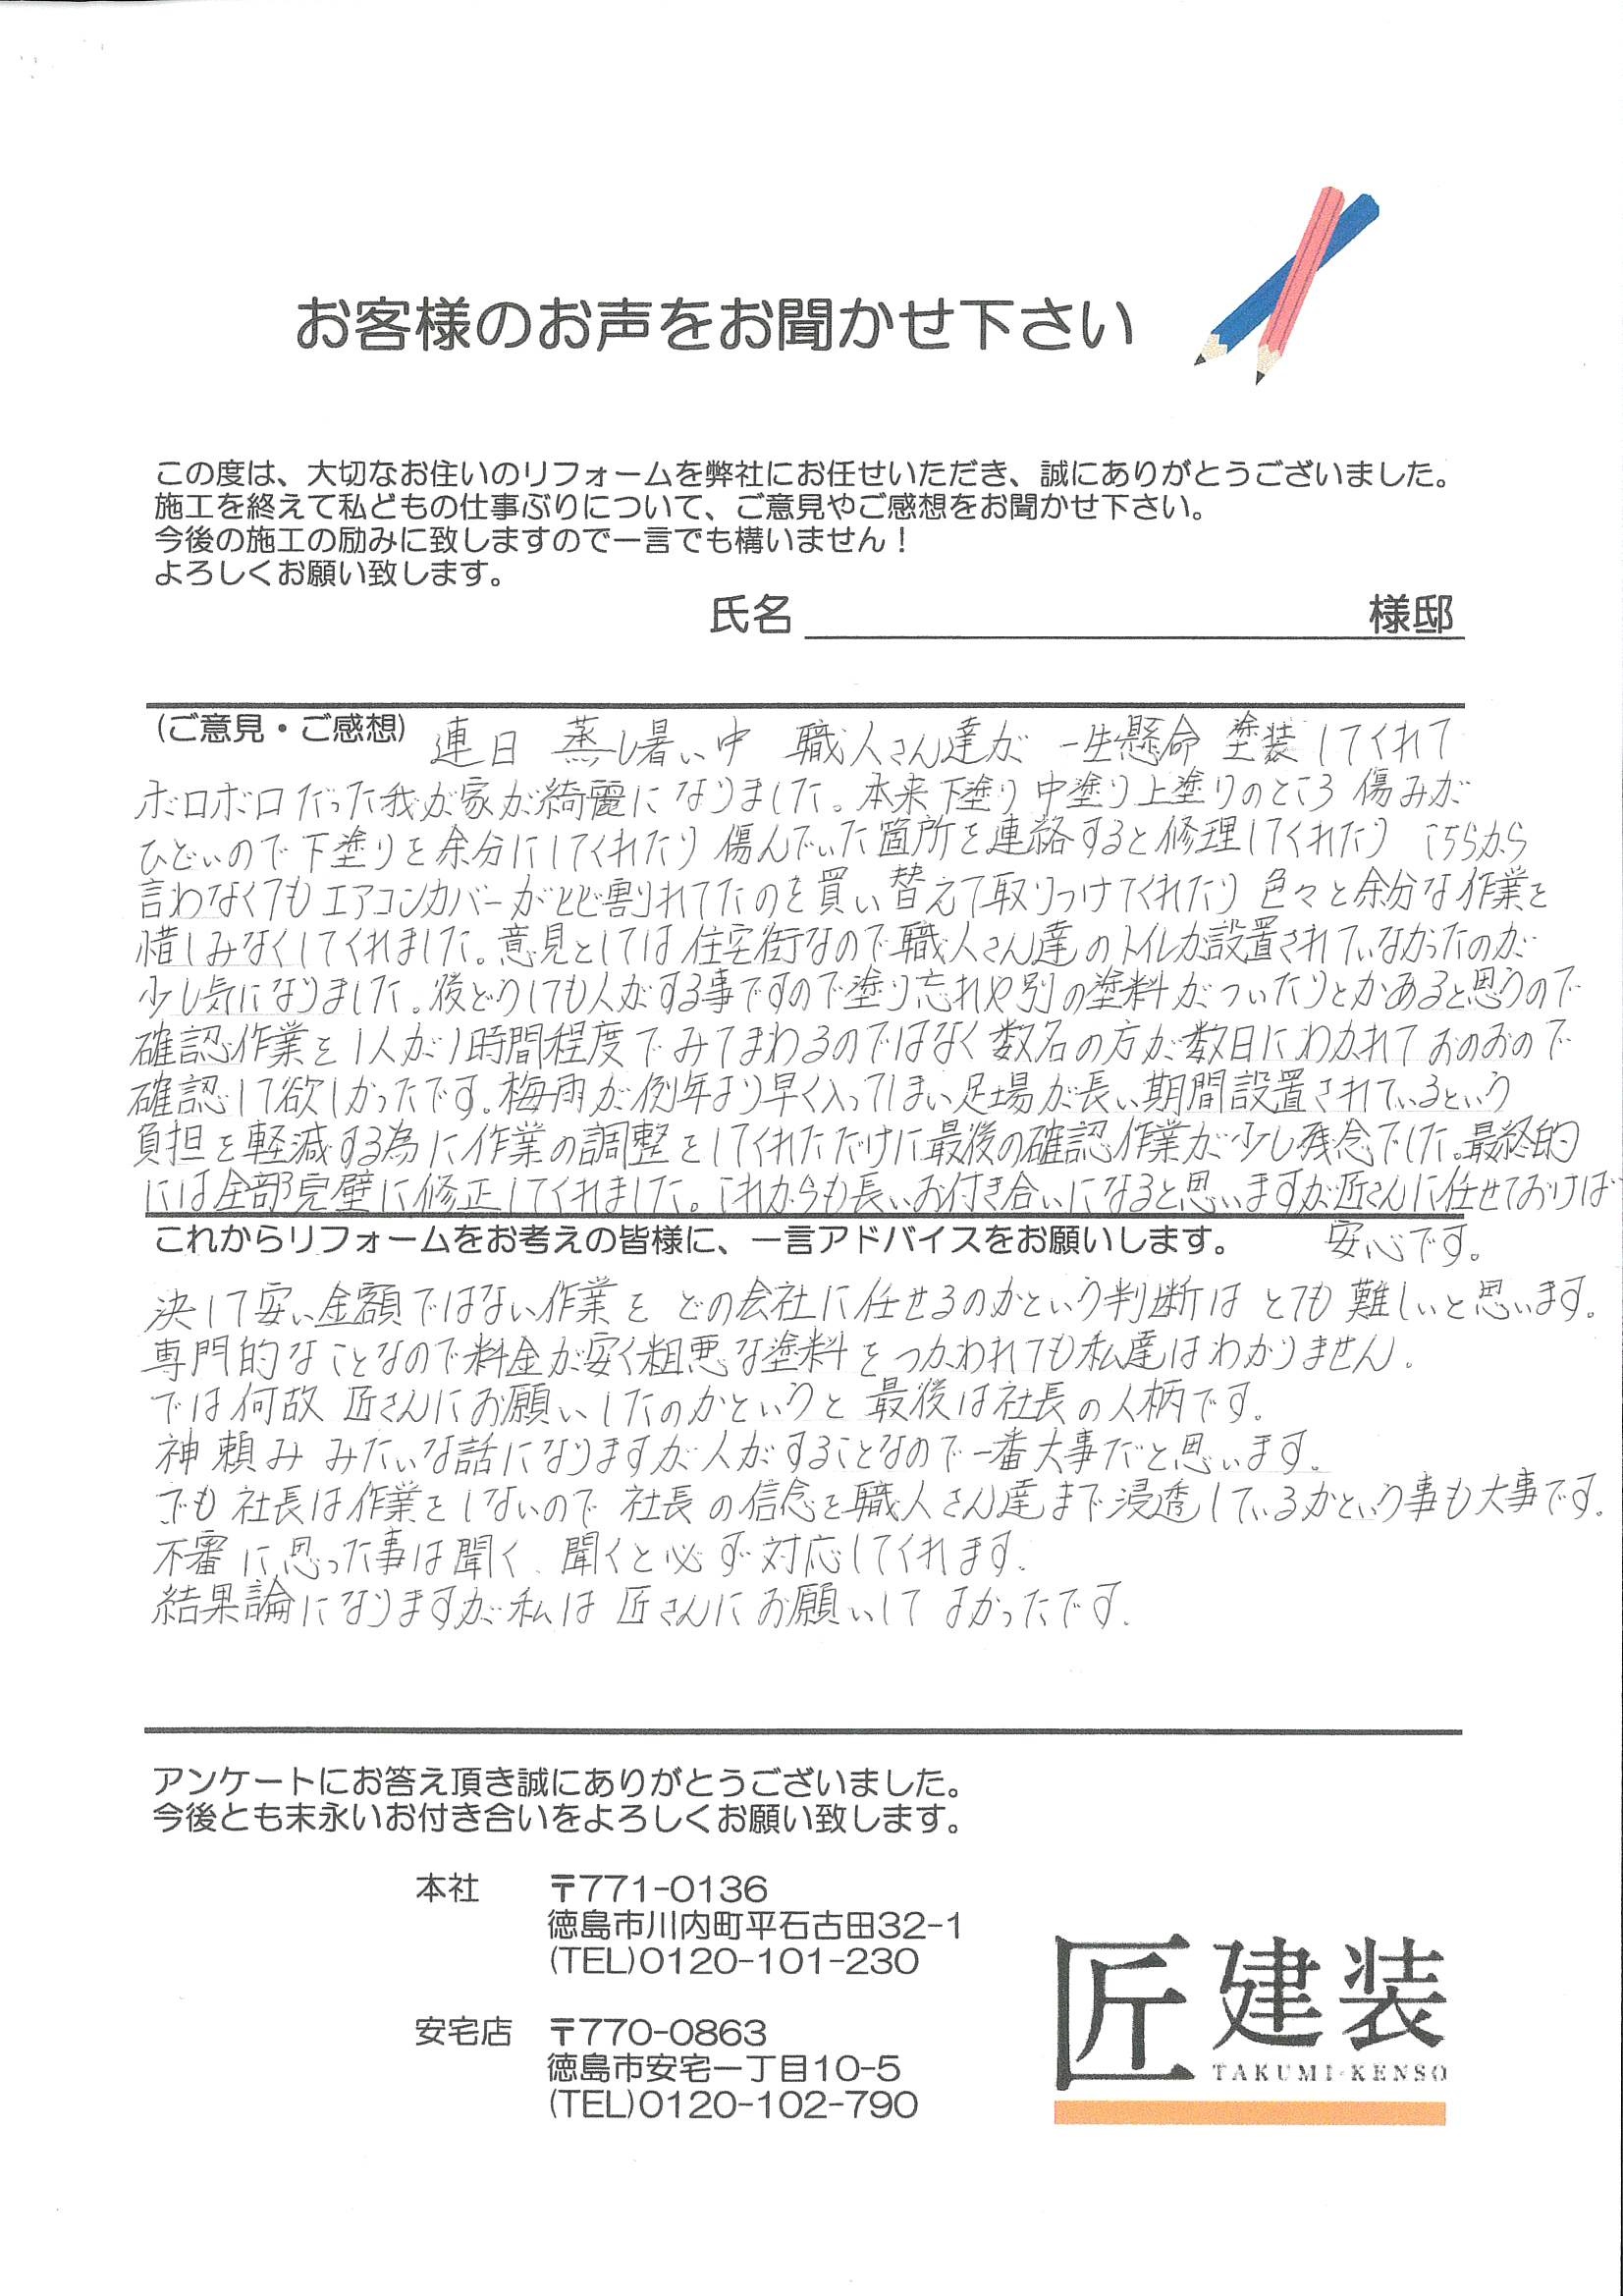 お客様のお声をお聞かせ下さい
この度は、大切なお住いのリフォームを弊社にお任せいただき、誠にありがとうございました。
施工を終えて私どもの仕事ぶりについて、ご意見やご感想をお聞かせ下さい。
今後の施工の励みに致しますので一言でも構いません！
よろしくお願い致します。
氏名 様邸
(ご意見・ご感想) 連日 蒸し暑い中 職人さん達が 一生懸命 塗装してくれて
ボロボロだった我が家が綺麗になりました。本来下塗り中塗り上塗りのところ 傷みが
ひどいので下塗りを余分にしてくれたり 傷んでいた箇所を連絡すると修理してくれたり こちらから
言わなくてもエアコンカバーがひび割れてたのを買い替えて取りつけてくれたり 色々と余分な作業を
惜しみなくしてくれました。意見としては住宅街なので職人さん達のトイレが設置されていなかったのが
少し気になりました。後どうしても人がする事ですので塗り忘れや別の塗料がついたりとかあると思うので
確認作業を1人が1時間程度でみてまわるのではなく数名の方が数日にわかれておのおので
確認して欲しかったです。梅雨が例年より早く入ってしまい足場が長い期間設置されているという
負担を軽減する為に作業の調整をしてくれただけに最後の確認作業が少し残念でした。最終的
には全部完璧に修正してくれました。これからも長いお付き合いになると思いますが匠さんに任せておけば
安心です。
これからリフォームをお考えの皆様に、一言アドバイスをお願いします。
決して安い金額ではない作業を どの会社に任せるのかという判断は とても 難しいと思います。
専門的なことなので料金が安く粗悪な塗料をつかわれても私達はわかりません。
では何故 匠さんにお願いしたのかというと 最後は社長の人柄です。
神頼み みたいな話になりますが人がすることなので一番大事だと思います。
でも 社長は作業をしないので 社長の信念を職人さん達まで浸透しているかという事も大事です。
不審に思った事は聞く、聞くと必ず対応してくれます。
結果論になりますが私は 匠さんにお願いして よかったです。
アンケートにお答え頂き誠にありがとうございました。
今後とも末永いお付き合いをよろしくお願い致します。
本社 〒771-0136
徳島市川内町平石古田32-1
(TEL)0120-101-230
安宅店 〒770-0863
徳島市安宅一丁目10-5
(TEL)0120-102-790
匠建装
TAKUMI-KENSO